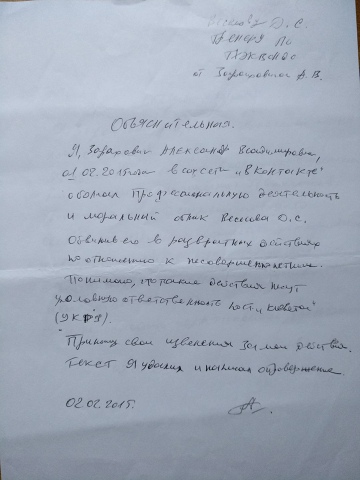 Д.С.
Тренера по
Тхэквондо
от А.В.
Объяснительная.
Я, Александр Владимирович,
01.02.2015 года в соц сети "Вконтакте"
оболгал профессиональную деятельность
и моральный облик Д.С.
Обвинив его в развратных действиях
по отношению к несовершеннолетним.
Понимаю, что такие действия несут
уголовную ответственность по ст "клевета"
(УК РФ).
Приношу свои извенения за мои действия.
Текст я удалил и написал опровержение.
02.02.2015.